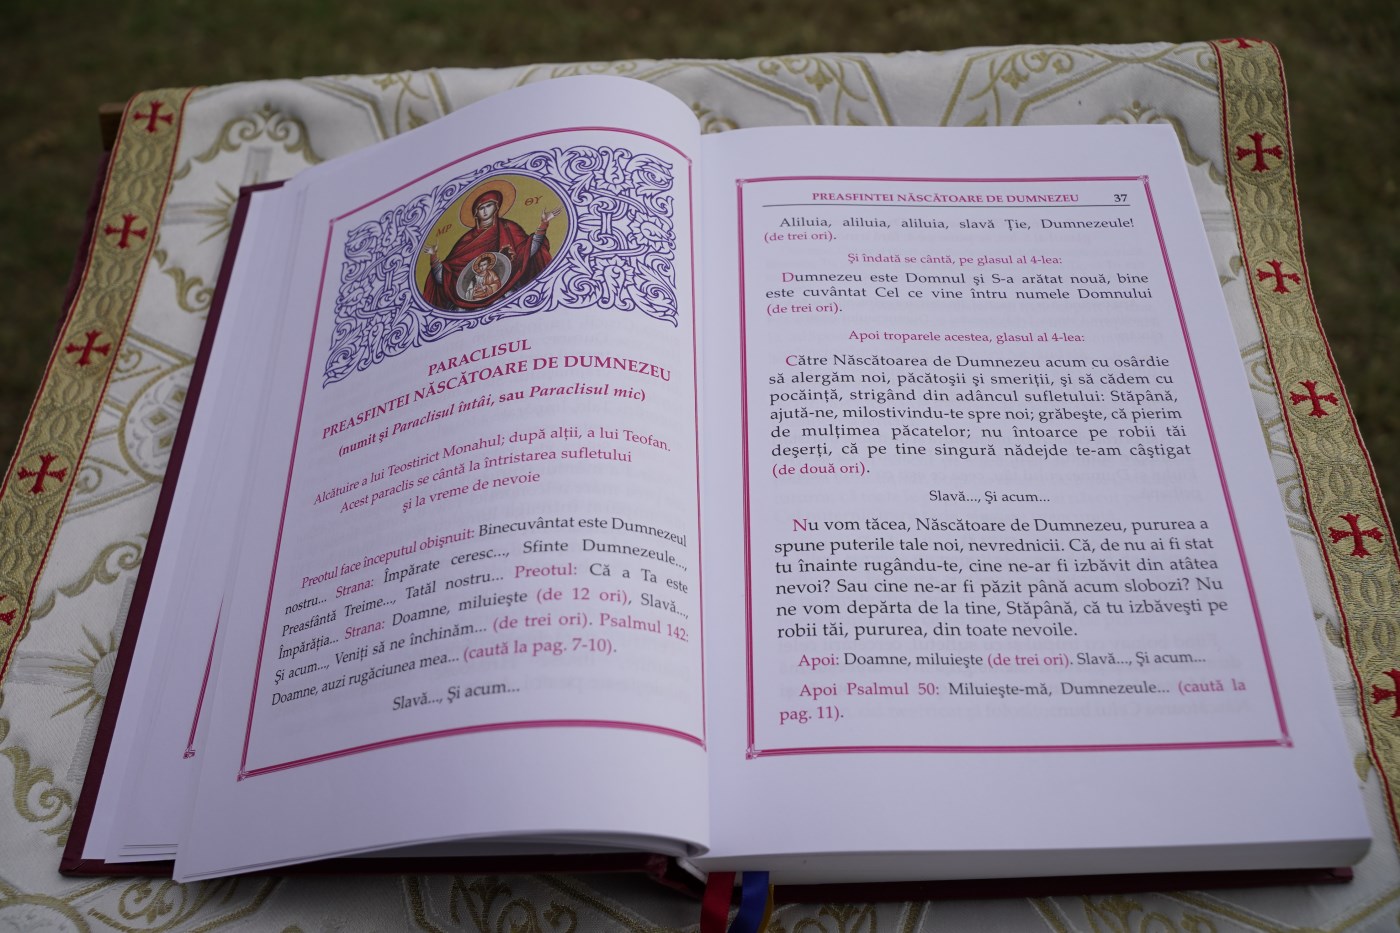 ΜΡ ΘΥ
PARACLISUL
PREASFINTEI NĂSCĂTOARE DE DUMNEZEU
(numit și Paraclisul întâi, sau Paraclisul mic)
Alcătuire a lui Teostirict Monahul; după alții, a lui Teofan.
Acest paraclis se cântă la întristarea sufletului
și la vreme de nevoie
Preotul face începutul obișnuit: Binecuvântat este Dumnezeul
nostru... Strana: Împărate ceresc..., Sfinte Dumnezeule...,
Preasfântă Treime..., Tatăl nostru... Preotul: Că a Ta este
Împărăția... Strana: Doamne, miluiește (de 12 ori), Slavă...,
Și acum..., Veniți să ne închinăm... (de trei ori). Psalmul 142:
Doamne, auzi rugăciunea mea... (caută la pag. 7-10).
Slavă..., Și acum...
PREASFINTEI NĂSCĂTOARE DE DUMNEZEU 37
Aliluia, aliluia, aliluia, slavă Ție, Dumnezeule!
(de trei ori).
Și îndată se cântă, pe glasul al 4-lea:
Dumnezeu este Domnul și S-a arătat nouă, bine
este cuvântat Cel ce vine întru numele Domnului
(de trei ori).
Apoi troparele acestea, glasul al 4-lea:
Către Născătoarea de Dumnezeu acum cu osârdie
să alergăm noi, păcătoșii și smeriții, și să cădem cu
pocăință, strigând din adâncul sufletului: Stăpână,
ajută-ne, milostivindu-te spre noi; grăbește, că pierim
de mulțimea păcatelor; nu întoarce pe robii tăi
deșerți, că pe tine singură nădejde te-am câștigat
(de două ori).
Slavă..., Și acum...
Nu vom tăcea, Născătoare de Dumnezeu, pururea a
spune puterile tale noi, nevrednicii. Că, de nu ai fi stat
tu înainte rugându-te, cine ne-ar fi izbăvit din atâtea
nevoi? Sau cine ne-ar fi păzit până acum slobozi? Nu
ne vom depărta de la tine, Stăpână, că tu izbăvești pe
robii tăi, pururea, din toate nevoile.
Apoi: Doamne, miluiește (de trei ori). Slavă..., Și acum...
Apoi Psalmul 50: Miluiește-mă, Dumnezeule... (caută la
pag. 11).